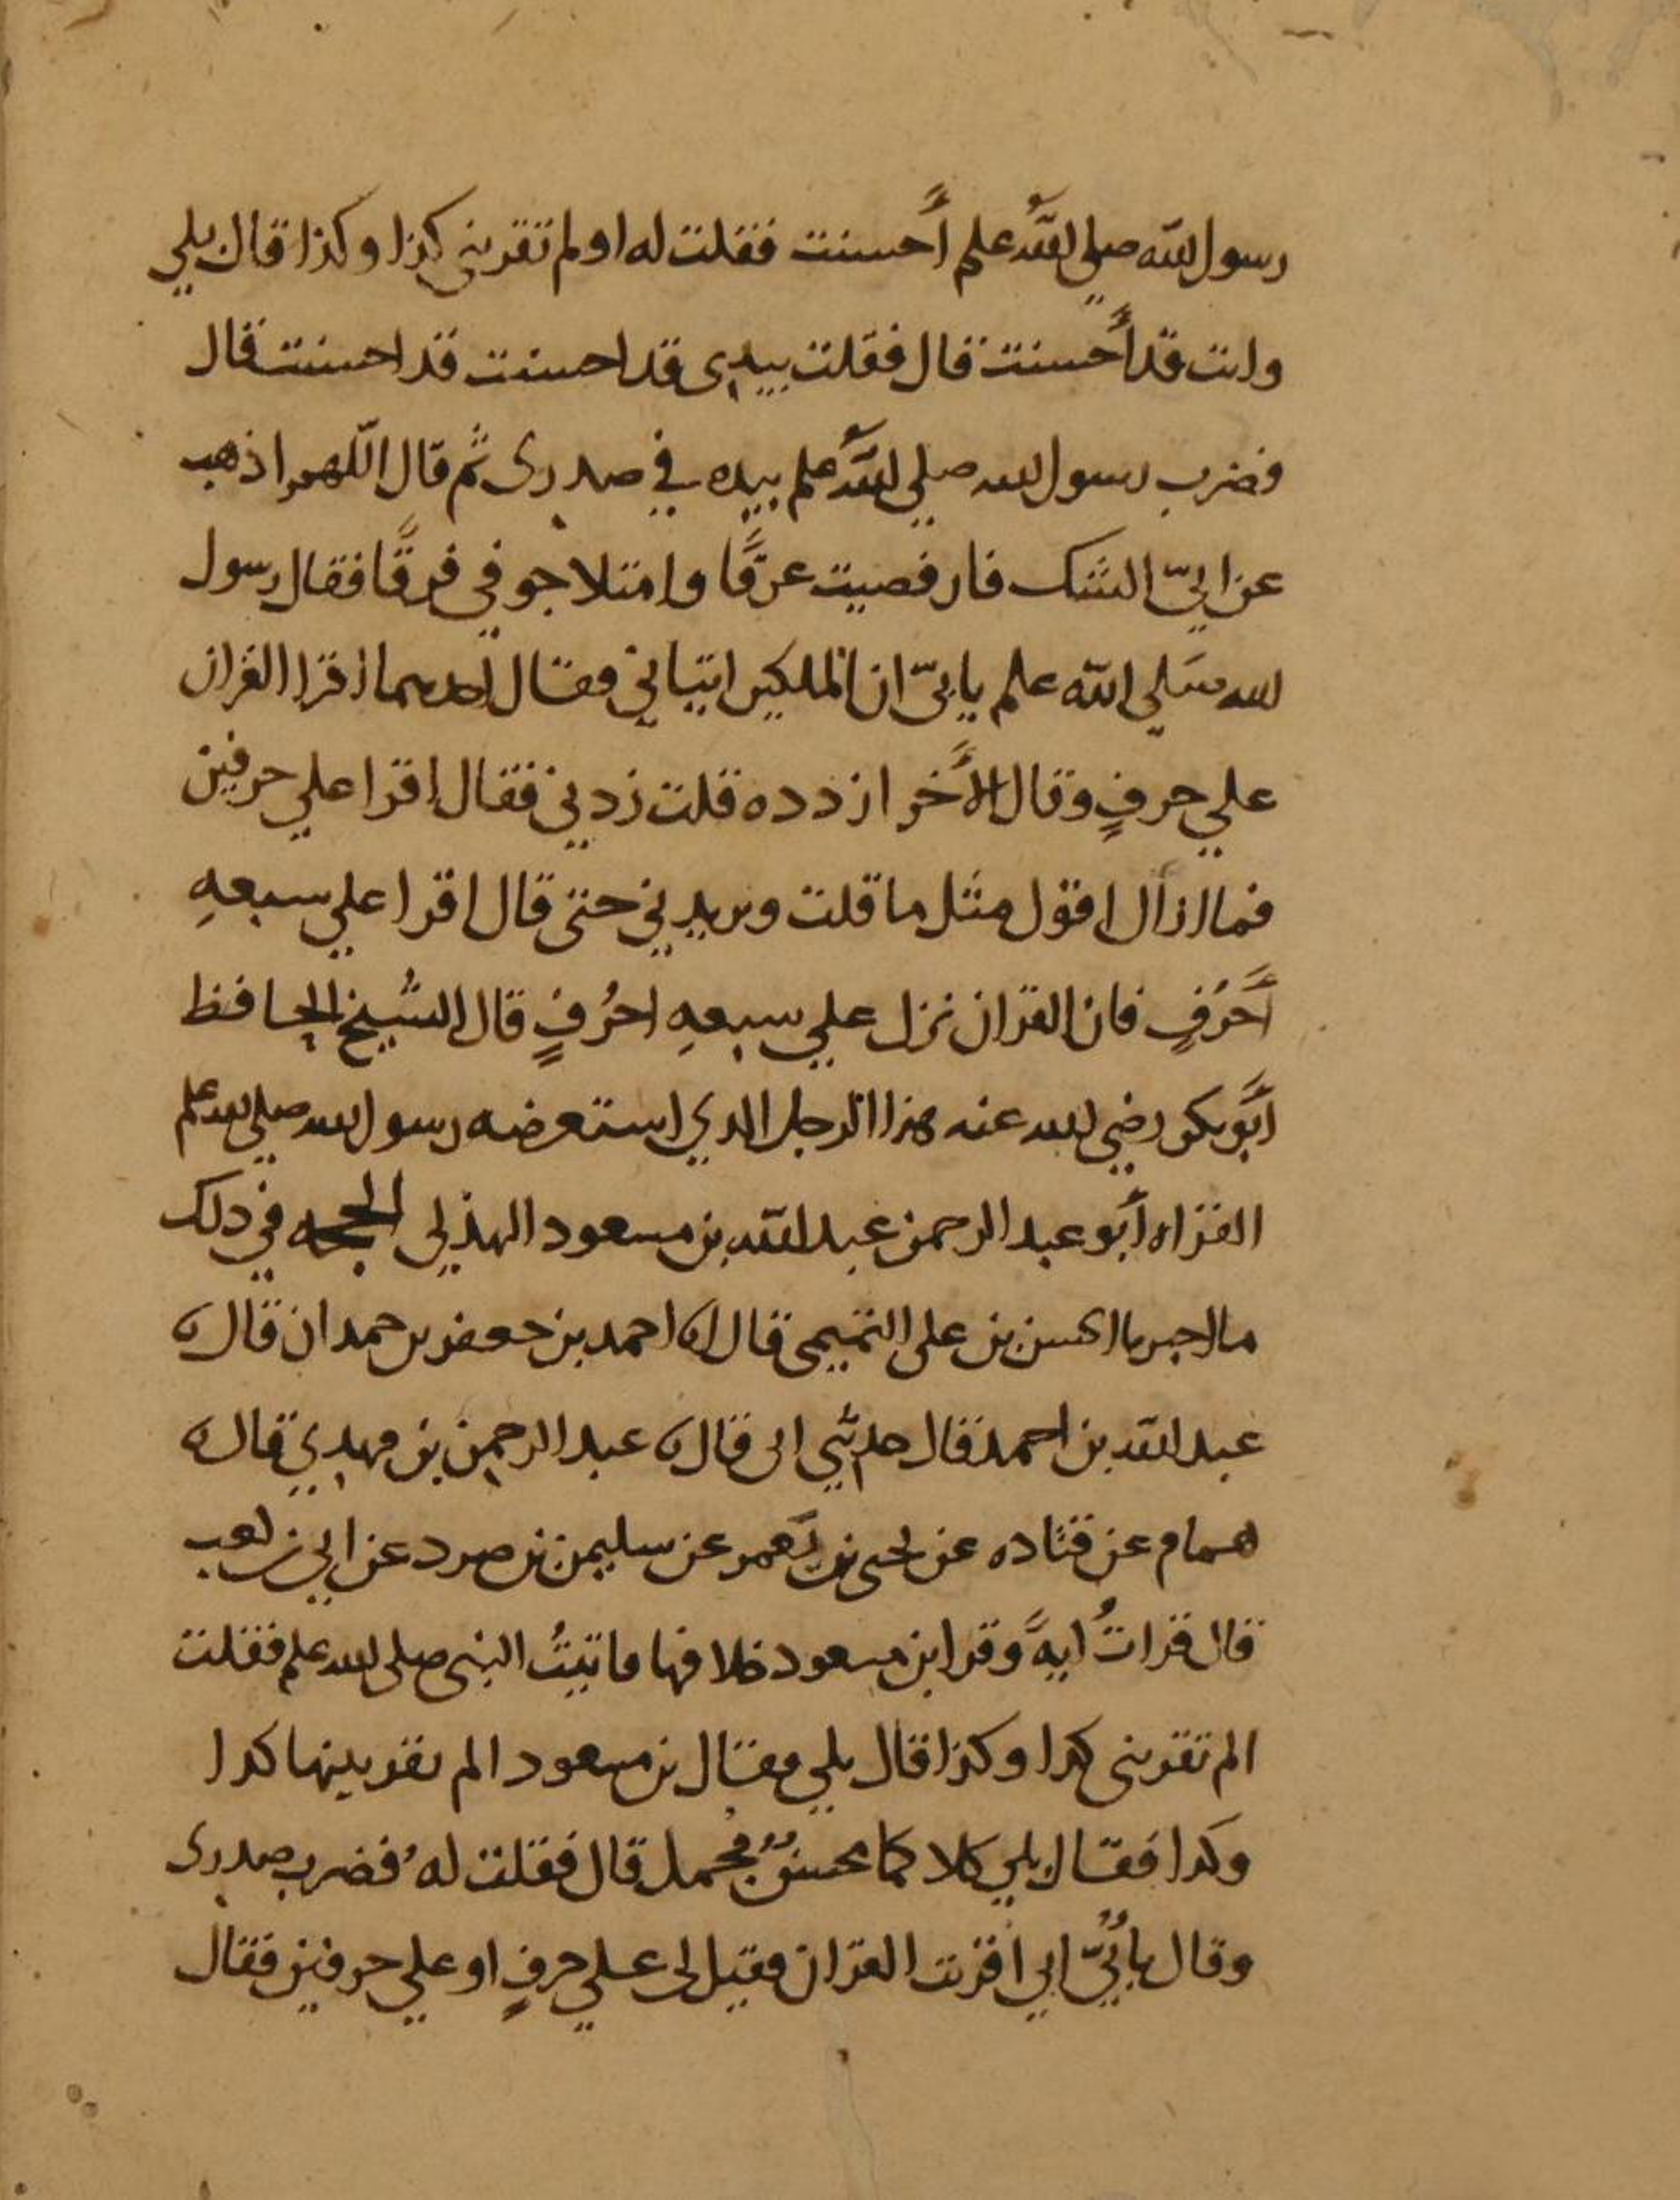 رسول الله صلى الله علم أحسنت فقلت له اولم تقرينى كذا وكذا قال بلي
وانت قد أحسنت قال فقلت بيدى قد احسنت قد احسنت قال
فضرب رسول الله صلي الله علم بيده في صدرى ثم قال اللهم اذهب
عن ابيّ الشك فارفصيت عرقًا وامتلا جوفي فرقًا فقال رسول
الله صلي الله علم يابىّ ان الملكين اتياني فقال احدهما اقرا القران
علي حرفٍ وقال الأخر ازدده قلت زدني فقال اقرا علي حرفين
فما ازال اقول مثل ما قلت ويزيدني حتى قال اقرا علي سبعهِ
أحرُفٍ فان القران نزل علي سبعهِ احرُفٍ قال الشيخ الحافظ
أبوبكر رضي الله عنه هذا الرجل الدي استعرضه رسول الله صلي الله علم
القراه أبو عبد الرحمن عبد الله بن مسعود الهذلى الحجه في دلك
ما اخبرنا الحسن بن على التميمى قال انا احمد بن جعفر بن حمدان قال نا
عبد الله بن احمد قال حدثني ابى قال نا عبد الرحمن بن مهدي قال نا
همام عن قتاده عن يحيى بن يَعمر عن سليمن بن صرد عن ابي بن كعب
قال قراتُ ايهً وقرا ابن مسعود خلافها فاتيتُ النبى صلى الله علم فقلت
الم تقرينى كدا وكذا قال بلي فقال بن مسعود الم تقرينها كدا
وكدا فقال بلي كلاكما محسنٌ مُجمل قال فقلت لهُ فضرب صدرى
وقال يا أُبيّ اني اقرئت القران فقيل لى علي حرفٍ او علي حرفين فقال